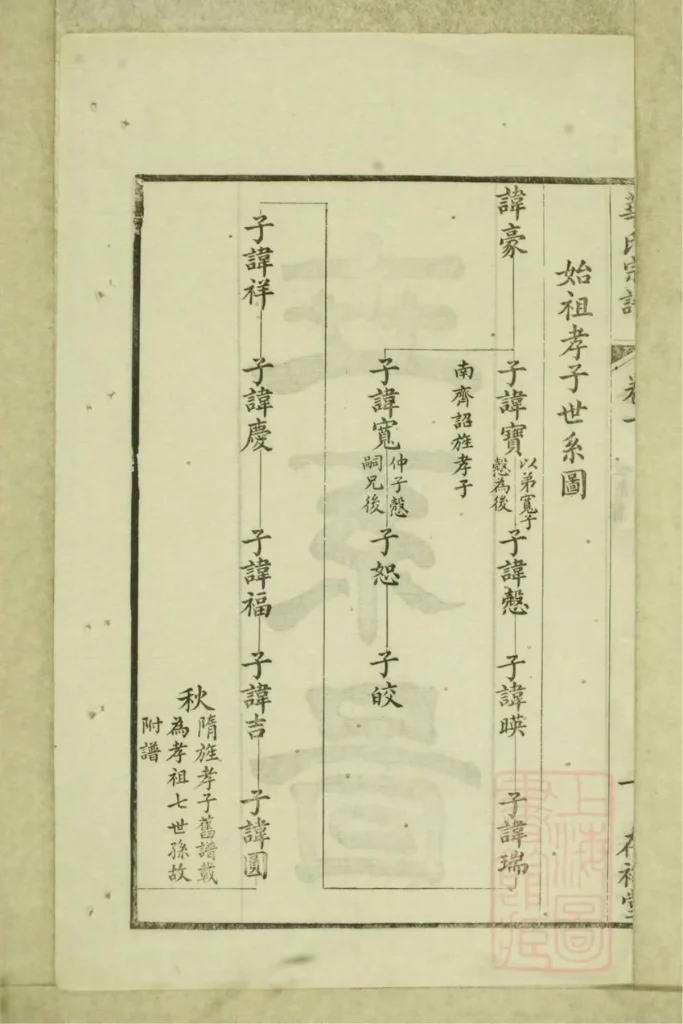 華氏宗譜
卷一
一
存裕堂
始祖孝子世系圖
諱豪
子諱寶
以弟寬子
慤為後
子諱慤
子諱暎
子諱瑞
南齊詔旌孝子
子諱寬
仲子慤
嗣兄後
子恕
子皎
子諱祥
子諱慶
子諱福
子諱吉
子諱圓
秋
隋旌孝子舊譜載
為孝祖七世孫故
附譜
上海圖